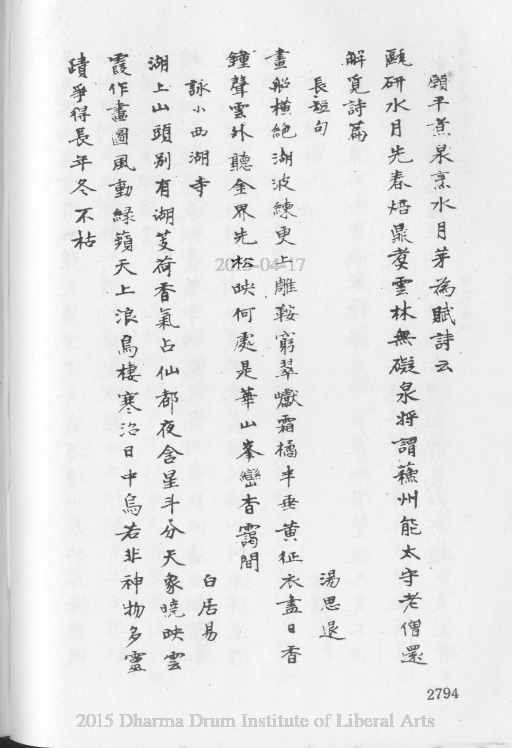 顧平煮泉烹水月芽為賦詩云
甌研水月先春焙鼎煑雲林無礙泉將謂蘓州能太守老僧還
解覓詩篇
長短句
湯思退
畫船橫絕湖波練更上雕鞍窮翠巘霜橘半垂黃征衣盡日香
鐘聲雲外聽金界先松映何處是華山峯巒杳靄間
詠小西湖寺
白居易
湖上山頭別有湖芰荷香氣占仙都夜含星斗分天象曉映雲
霞作畫圖風動綠蘋天上浪鳥棲寒沼日中烏若非神物多靈
蹟爭得長年冬不枯
2794
2015-04-17
2015 Dharma Drum Institute of Liberal Arts